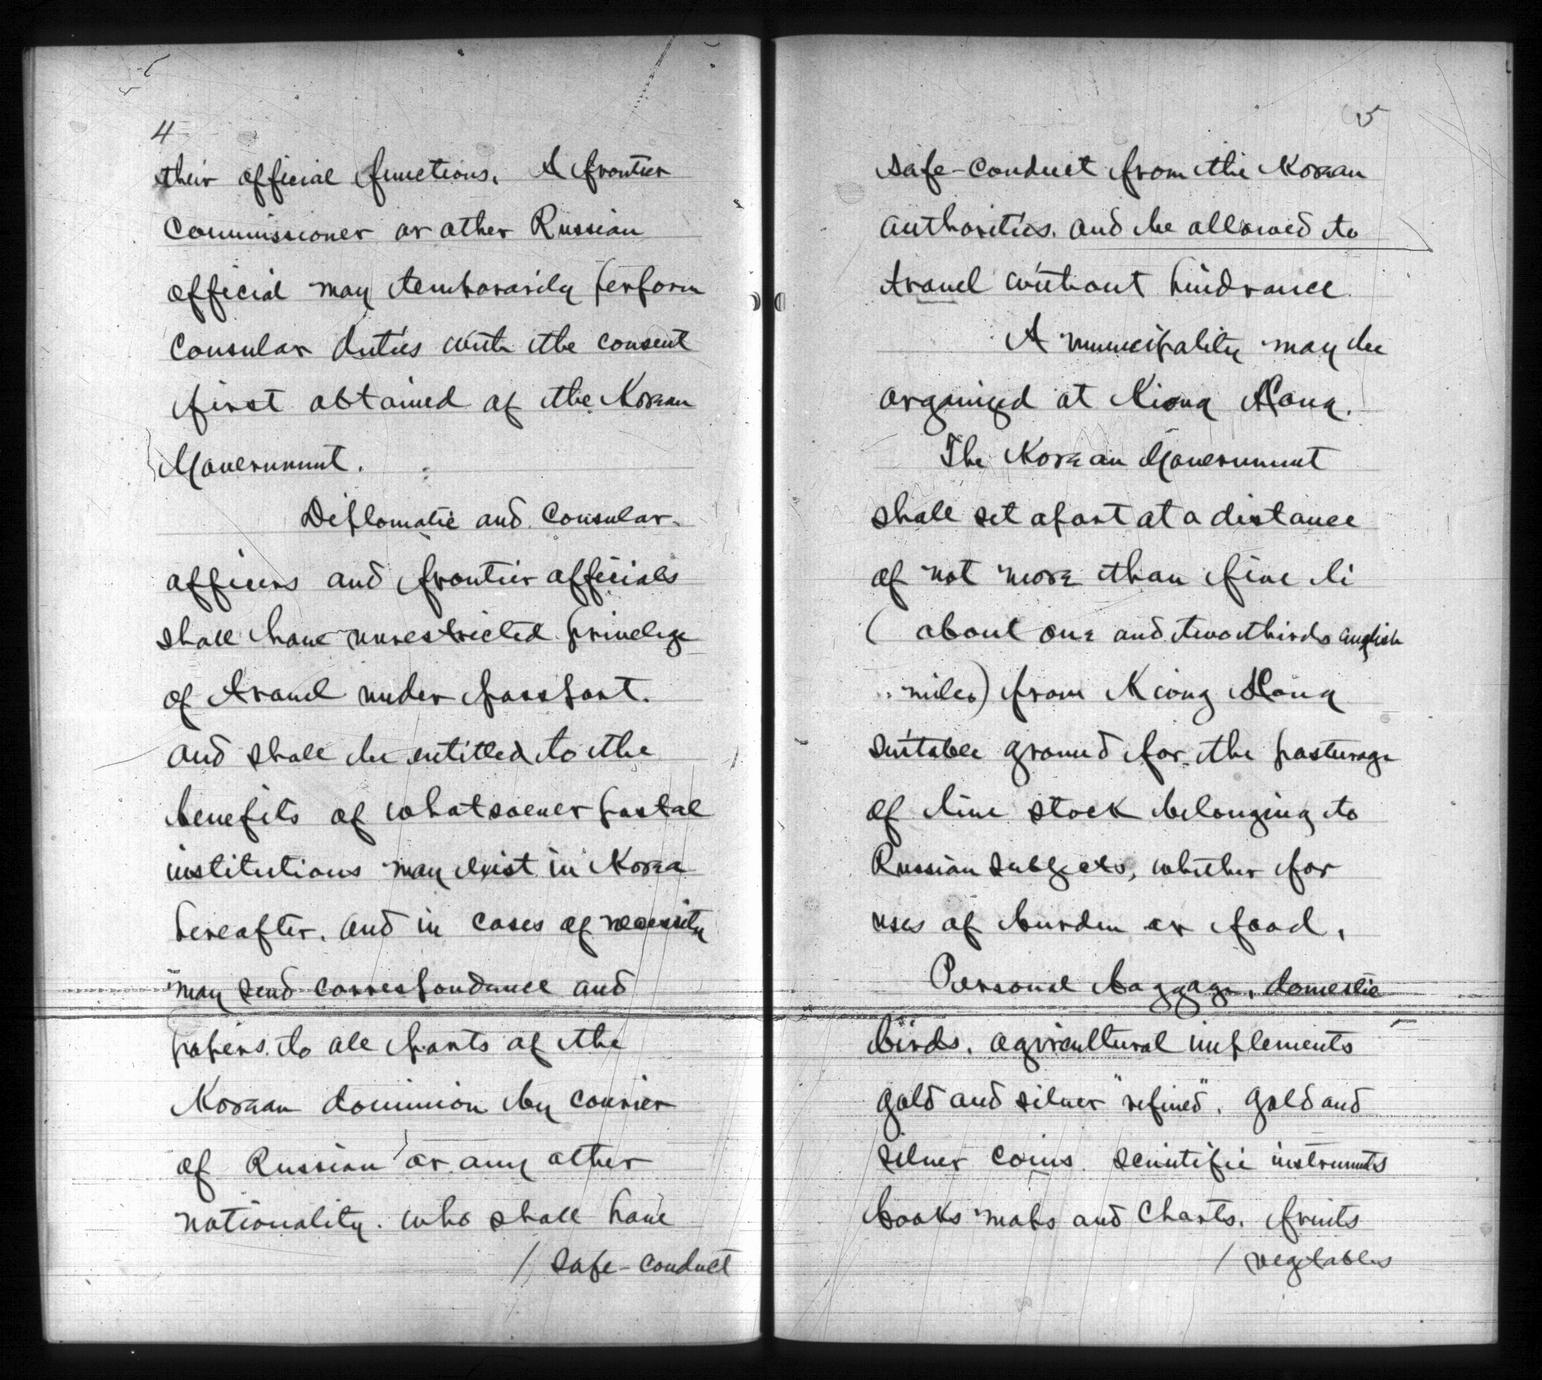 4
their official functions. A frontier
Commissioner or other Russian
official may temporarily perform
Consular duties with the consent
first obtained of the Korean
Government.
Diplomatic and Consular
officers and frontier officials
shall have unrestricted privelege
of travel under passport.
and shall be entitled to the
benefits of whatsoever postal
institutions may exist in Korea
hereafter. and in cases of necessity
may send correspondance and
papers to all parts of the
Korean dominion by courier
of Russian or any other
nationality. who shall have
/ safe-conduct
5
safe-conduct from the Korean
authorities. and be allowed to
travel without hindrance
A municipality may be
organized at Kiong Hong.
The Korean Government
shall set apart at a distance
of not more than five li
( about one and two thirds english
miles) from Kiong Hong
suitable ground for the pasturage
of live stock belonging to
Russian subjects, whether for
uses of burden or food.
Personal baggage, domestic
birds. agricultural implements
gold and silver "refined". gold and
silver coins. scientific instruments
books maps and Charts. fruits
/ vegetables